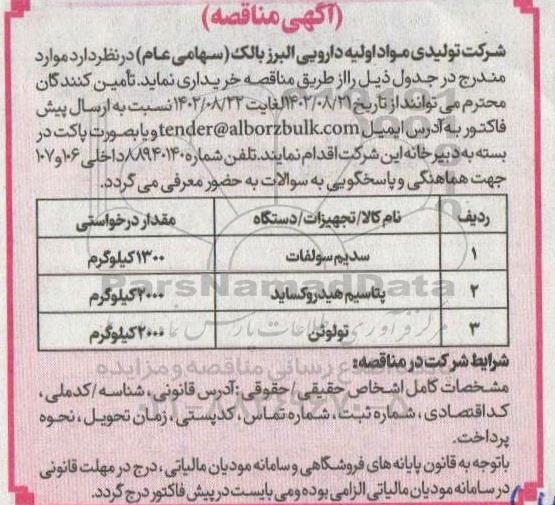 (آگهی مناقصه)
شرکت تولیدی مواد اولیه دارویی البرز بالک (سهامی عام) در نظر دارد موارد
مندرج در جدول ذیل را از طریق مناقصه خریداری نماید. تأمین کنندگان
محترم می توانند از تاریخ ۱۴۰۲/۰۸/۲۱ لغایت ۱۴۰۲/۰۸/۲۲ نسبت به ارسال پیش
فاکتور به آدرس ایمیل tender@alborzbulk.com و یا بصورت پاکت در
بسته به دبیرخانه این شرکت اقدام نمایند. تلفن شماره ۸۸۹۴۰۱۴۰ داخلی ۱۰۶ و ۱۰۷
جهت هماهنگی و پاسخگویی به سوالات به حضور معرفی می گردد.
ردیف نام کالا/تجهیزات/دستگاه مقدار درخواستی
۱ سدیم سولفات ۱۳۰۰ کیلوگرم
۲ پتاسیم هیدروکساید ۲۰۰۰ کیلوگرم
ParsNamadData
۳ تولوئن ۲۰۰۰ کیلوگرم
شرایط شرکت در مناقصه:
مشخصات کامل اشخاص حقیقی/حقوقی: آدرس قانونی، شناسه/کدملی،
کد اقتصادی، شماره ثبت، شماره تماس، کدپستی، زمان تحویل، نحوه
پرداخت.
با توجه به قانون پایانه های فروشگاهی و سامانه مودیان مالیاتی، درج در مهلت قانونی
در سامانه مودیان مالیاتی الزامی بوده و می بایست در پیش فاکتور درج گردد.